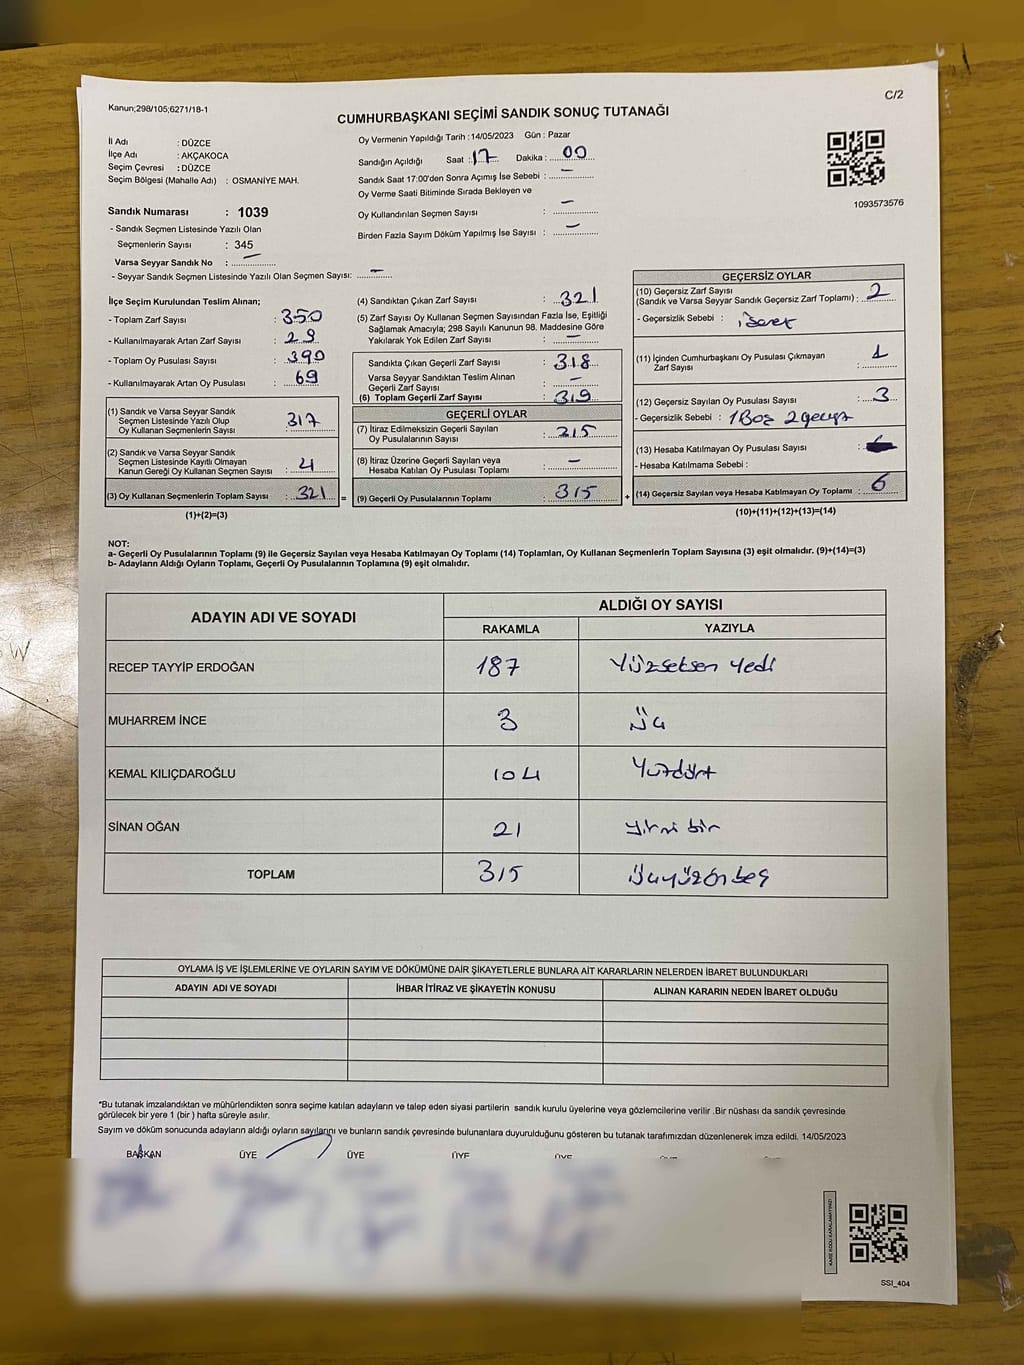 Kanun;298/105;6271/18-1
C/2
CUMHURBAŞKANI SEÇİMİ SANDIK SONUÇ TUTANAĞI
İl Adı : DÜZCE
İlçe Adı : AKÇAKOCA
Seçim Çevresi : DÜZCE
Seçim Bölgesi (Mahalle Adı) : OSMANİYE MAH.
Sandık Numarası : 1039
- Sandık Seçmen Listesinde Yazılı Olan
Seçmenlerin Sayısı : 345
Varsa Seyyar Sandık No : —
- Seyyar Sandık Seçmen Listesinde Yazılı Olan Seçmen Sayısı: —
Oy Vermenin Yapıldığı Tarih :14/05/2023 Gün : Pazar
Sandığın Açıldığı Saat : 17 Dakika : 00
Sandık Saat 17:00'den Sonra Açımış İse Sebebi : —
Oy Verme Saati Bitiminde Sırada Bekleyen ve
Oy Kullandırılan Seçmen Sayısı : —
Birden Fazla Sayım Döküm Yapılmış İse Sayısı : —
1093573576
İlçe Seçim Kurulundan Teslim Alınan;
- Toplam Zarf Sayısı : 350
- Kullanılmayarak Artan Zarf Sayısı : 29
- Toplam Oy Pusulası Sayısı : 390
- Kullanılmayarak Artan Oy Pusulası : 69
(1) Sandık ve Varsa Seyyar Sandık
Seçmen Listesinde Yazılı Olup
Oy Kullanan Seçmenlerin Sayısı : 317
(2) Sandık ve Varsa Seyyar Sandık
Seçmen Listesinde Kayıtlı Olmayan
Kanun Gereği Oy Kullanan Seçmen Sayısı : 4
(3) Oy Kullanan Seçmenlerin Toplam Sayısı : 321 =
(1)+(2)=(3)
(4) Sandıktan Çıkan Zarf Sayısı : 321
(5) Zarf Sayısı Oy Kullanan Seçmen Sayısından Fazla İse, Eşitliği
Sağlamak Amacıyla; 298 Sayılı Kanunun 98. Maddesine Göre
Yakılarak Yok Edilen Zarf Sayısı : —
Sandıkta Çıkan Geçerli Zarf Sayısı : 318
Varsa Seyyar Sandıktan Teslim Alınan
Geçerli Zarf Sayısı : —
(6) Toplam Geçerli Zarf Sayısı : 319
GEÇERLİ OYLAR
(7) İtiraz Edilmeksizin Geçerli Sayılan
Oy Pusulalarının Sayısı : 315
(8) İtiraz Üzerine Geçerli Sayılan veya
Hesaba Katılan Oy Pusulası Toplamı : —
(9) Geçerli Oy Pusulalarının Toplamı : 315 +
GEÇERSİZ OYLAR
(10) Geçersiz Zarf Sayısı
(Sandık ve Varsa Seyyar Sandık Geçersiz Zarf Toplamı) : 2
- Geçersizlik Sebebi : işaret
(11) İçinden Cumhurbaşkanı Oy Pusulası Çıkmayan
Zarf Sayısı : 1
(12) Geçersiz Sayılan Oy Pusulası Sayısı : 3
- Geçersizlik Sebebi : 1 Boş 2
(13) Hesaba Katılmayan Oy Pusulası Sayısı :
- Hesaba Katılmama Sebebi :
(14) Geçersiz Sayılan veya Hesaba Katılmayan Oy Toplamı : 6
(10)+(11)+(12)+(13)=(14)
NOT:
a- Geçerli Oy Pusulalarının Toplamı (9) ile Geçersiz Sayılan veya Hesaba Katılmayan Oy Toplamı (14) Toplamları, Oy Kullanan Seçmenlerin Toplam Sayısına (3) eşit olmalıdır. (9)+(14)=(3)
b- Adayların Aldığı Oyların Toplamı, Geçerli Oy Pusulalarının Toplamına (9) eşit olmalıdır.
ADAYIN ADI VE SOYADI
ALDIĞI OY SAYISI
RAKAMLA YAZIYLA
RECEP TAYYİP ERDOĞAN 187 Yüzseksen Yedi
MUHARREM İNCE 3 Üç
KEMAL KILIÇDAROĞLU 104 Yüzdört
SİNAN OĞAN 21 yirmi bir
TOPLAM 315 üçyüzonbeş
OYLAMA İŞ VE İŞLEMLERİNE VE OYLARIN SAYIM VE DÖKÜMÜNE DAİR ŞİKAYETLERLE BUNLARA AİT KARARLARIN NELERDEN İBARET BULUNDUKLARI
ADAYIN ADI VE SOYADI İHBAR İTİRAZ VE ŞİKAYETİN KONUSU ALINAN KARARIN NEDEN İBARET OLDUĞU
*Bu tutanak imzalandıktan ve mühürlendikten sonra seçime katılan adayların ve talep eden siyasi partilerin sandık kurulu üyelerine veya gözlemcilerine verilir .Bir nüshası da sandık çevresinde
görülecek bir yere 1 (bir ) hafta süreyle asılır.
Sayım ve döküm sonucunda adayların aldığı oyların sayılarını ve bunların sandık çevresinde bulunanlara duyurulduğunu gösteren bu tutanak tarafımızdan düzenlenerek imza edildi. 14/05/2023
BAŞKAN ÜYE ÜYE ÜYE ÜYE
SSI_404